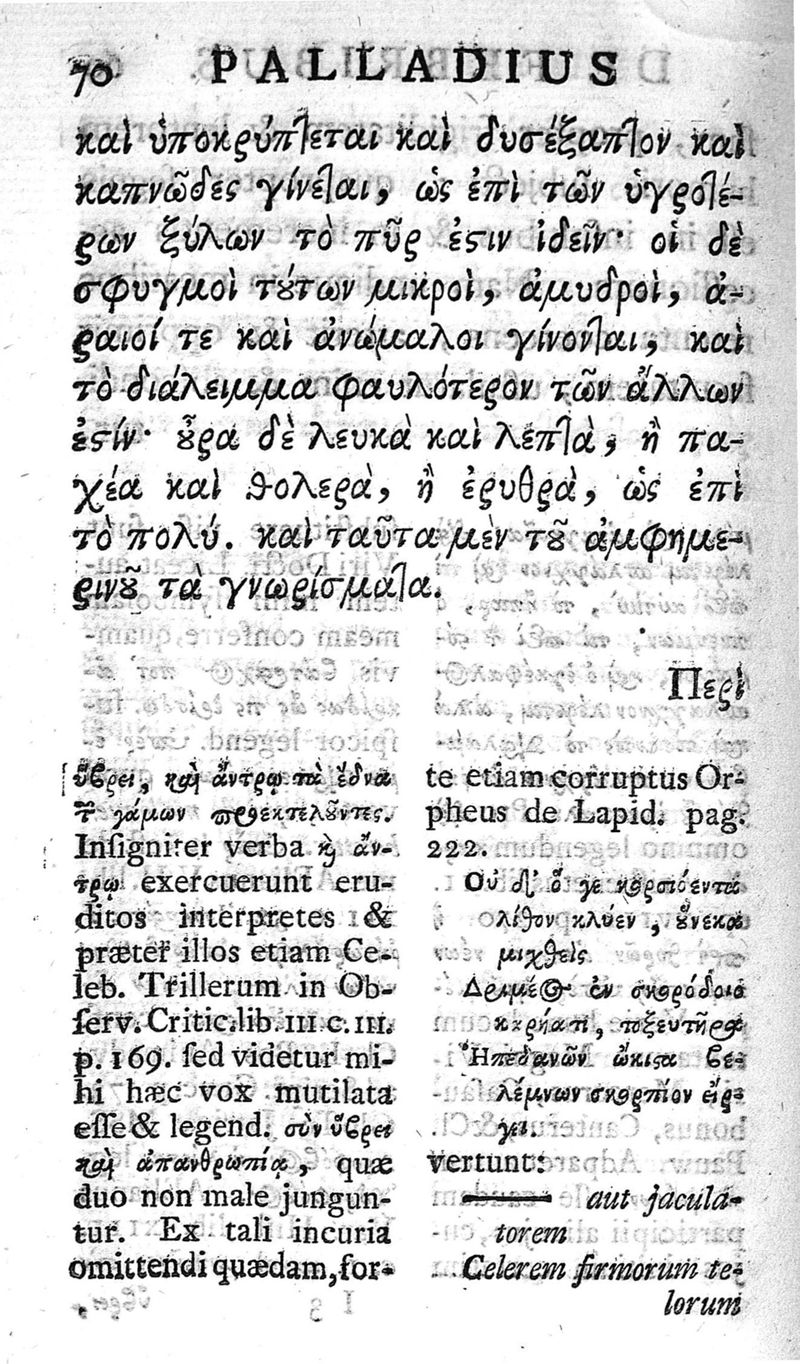 70 PALLADIUS
καὶ ὑποκρύπτεται καὶ δυσέξαπτον καὶ
καπνῶδες γίνεται, ὡς ἐπὶ τῶν ὑγροτέ-
ρων ξύλων τὸ πῦρ ἐστιν ἰδεῖν· οἱ δὲ
σφυγμοὶ τούτων μικροὶ, ἀμυδροὶ, ἀ-
ραιοί τε καὶ ἀνώμαλοι γίνονται, καὶ
τὸ διάλειμμα φαυλότερον τῶν ἄλλων
ἐστίν· οὖρα δὲ λευκὰ καὶ λεπτὰ, ἢ πα-
χέα καὶ θολερὰ, ἢ ἐρυθρὰ, ὡς ἐπὶ
τὸ πολύ. καὶ ταῦτα μὲν τοῦ ἀμφημε-
ρινοῦ τὰ γνωρίσματα.
Περὶ
ὕβρει, καὶ ἄντρῳ τὰ ἕδνα
τῶν γάμων προεκτελοῦντες.
Insigniter verba καὶ ἄν-
τρῳ exercuerunt eru-
ditos interpretes &
præter illos etiam Ce-
leb. Trillerum in Ob-
serv. Critic. lib. III c. III.
p. 169. sed videtur mi-
hi hæc vox mutilata
esse & legend. σὺν ὕβρει
καὶ ἀπανθρωπίᾳ, quæ
duo non male jungun-
tur. Ex tali incuria
omittendi quædam, for-
te etiam corruptus Or-
pheus de Lapid. pag.
222.
Οὐ δ' ὅ γε καρσιόεντα
λίθον κλύεν, οὕνεκα
μιχθεὶς
Δριμέος ἐν σκορόδοιο
καρήατι, τοξευτῆρα
Ἠπεδανῶν ὤκιστα βε-
λέμνων σκορπίον εἴρ-
γει.
vertunt:
—— aut jacula-
torem
Celerem firmorum te-
lorum